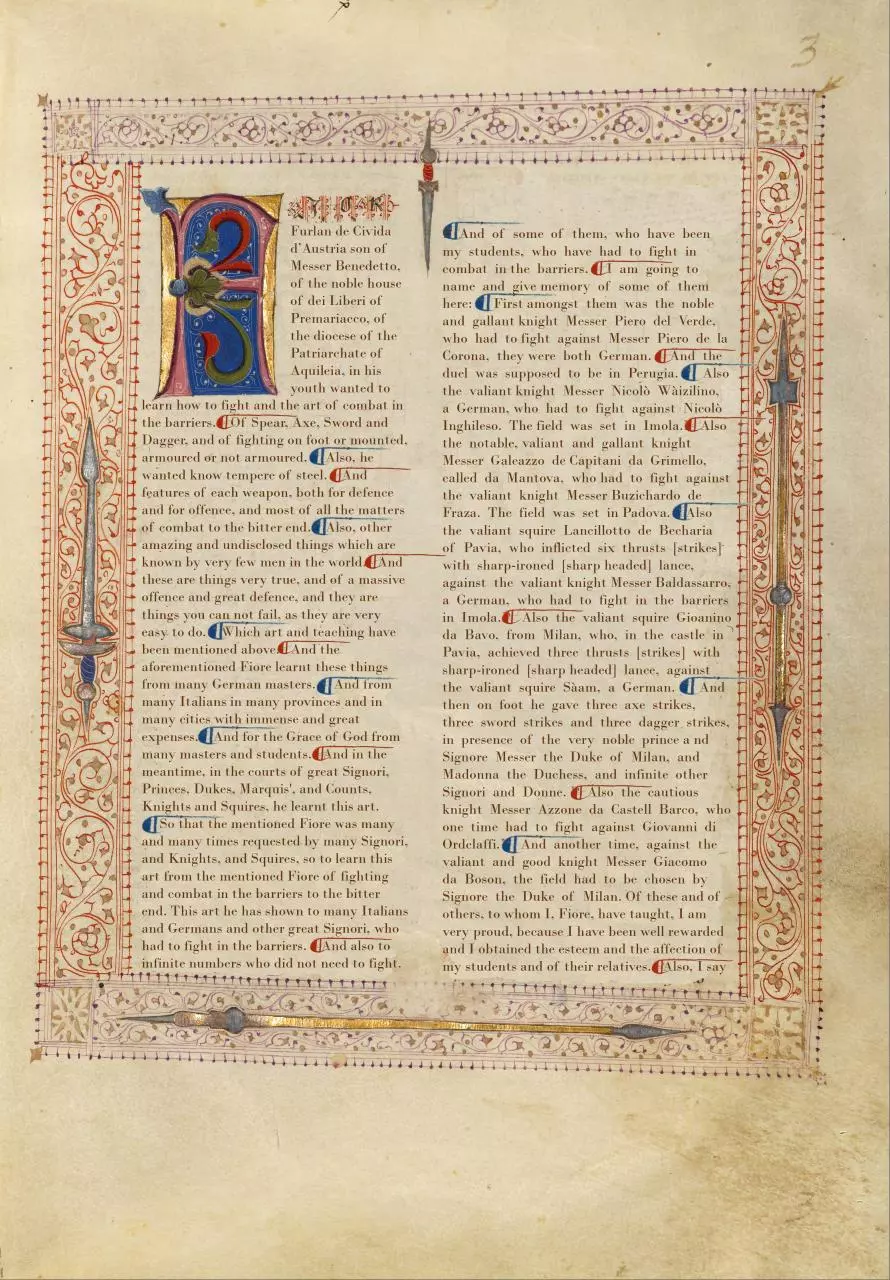 3
FIOR
Furlan de Civida
d'Austria son of
Messer Benedetto,
of the noble house
of dei Liberi of
Premariacco, of
the diocese of the
Patriarchate of
Aquileia, in his
youth wanted to
learn how to fight and the art of combat in
the barriers. Of Spear, Axe, Sword and
Dagger, and of fighting on foot or mounted,
armoured or not armoured. Also, he
wanted know tempere of steel. And
features of each weapon, both for defence
and for offence, and most of all the matters
of combat to the bitter end. Also, other
amazing and undisclosed things which are
known by very few men in the world. And
these are things very true, and of a massive
offence and great defence, and they are
things you can not fail, as they are very
easy to do. Which art and teaching have
been mentioned above. And the
aforementioned Fiore learnt these things
from many German masters. And from
many Italians in many provinces and in
many cities with immense and great
expenses. And for the Grace of God from
many masters and students. And in the
meantime, in the courts of great Signori,
Princes, Dukes, Marquis', and Counts,
Knights and Squires, he learnt this art.
So that the mentioned Fiore was many
and many times requested by many Signori,
and Knights, and Squires, so to learn this
art from the mentioned Fiore of fighting
and combat in the barriers to the bitter
end. This art he has shown to many Italians
and Germans and other great Signori, who
had to fight in the barriers. And also to
infinite numbers who did not need to fight.
And of some of them, who have been
my students, who have had to fight in
combat in the barriers. I am going to
name and give memory of some of them
here: First amongst them was the noble
and gallant knight Messer Piero del Verde,
who had to fight against Messer Piero de la
Corona, they were both German. And the
duel was supposed to be in Perugia. Also
the valiant knight Messer Nicolò Wàizilino,
a German, who had to fight against Nicolò
Inghileso. The field was set in Imola. Also
the notable, valiant and gallant knight
Messer Galeazzo de Capitani da Grimello,
called da Mantova, who had to fight against
the valiant knight Messer Buzichardo de
Fraza. The field was set in Padova. Also
the valiant squire Lancillotto de Becharia
of Pavia, who inflicted six thrusts [strikes]
with sharp-ironed [sharp headed] lance,
against the valiant knight Messer Baldassarro,
a German, who had to fight in the barriers
in Imola. Also the valiant squire Gioanino
da Bavo, from Milan, who, in the castle in
Pavia, achieved three thrusts [strikes] with
sharp-ironed [sharp headed] lance, against
the valiant squire Sàam, a German. And
then on foot he gave three axe strikes,
three sword strikes and three dagger strikes,
in presence of the very noble prince a nd
Signore Messer the Duke of Milan, and
Madonna the Duchess, and infinite other
Signori and Donne. Also the cautious
knight Messer Azzone da Castell Barco, who
one time had to fight against Giovanni di
Ordelaffi. And another time, against the
valiant and good knight Messer Giacomo
da Boson, the field had to be chosen by
Signore the Duke of Milan. Of these and of
others, to whom I, Fiore, have taught, I am
very proud, because I have been well rewarded
and I obtained the esteem and the affection of
my students and of their relatives. Also, I say